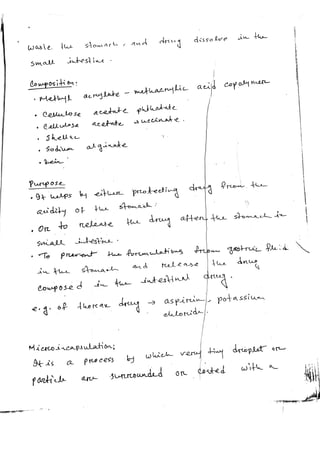 waste the stomach, and drug dissolve in the
small intestine.
Composition:
• Methyl acrylate - methacrylic acid copolymer
• Cellulose acetate phthalate
• Cellulose acetate succinate.
• Shellac
• Sodium alginate
• Zein
Purpose
• It helps by either protecting drug from the
acidity of the stomach.
• Or to release the drug after the stomach in
small intestine.
• To prevent the formulations from gastric fluid
in the stomach and release the drug
composed in the intestinal drug.
e.g. of these drug → aspirin, potassium
chloride.
Microincapsulation;
It is a process by which very tiny droplet or
particle are surrounded or coated with a